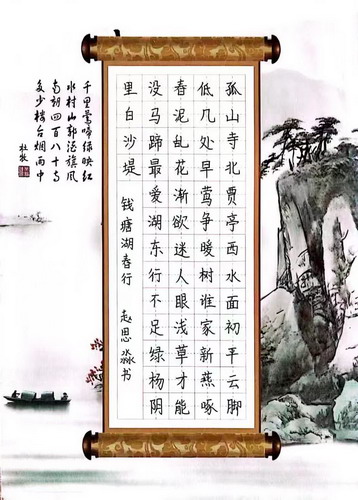 孤山寺北贾亭西水面初平云脚
低几处早莺争暖树谁家新燕啄
春泥乱花渐欲迷人眼浅草才能
没马蹄最爱湖东行不足绿杨阴
里白沙堤 钱塘湖春行 赵思淼书
千里莺啼绿映红
水村山郭酒旗风
南朝四百八十寺
多少楼台烟雨中
杜牧